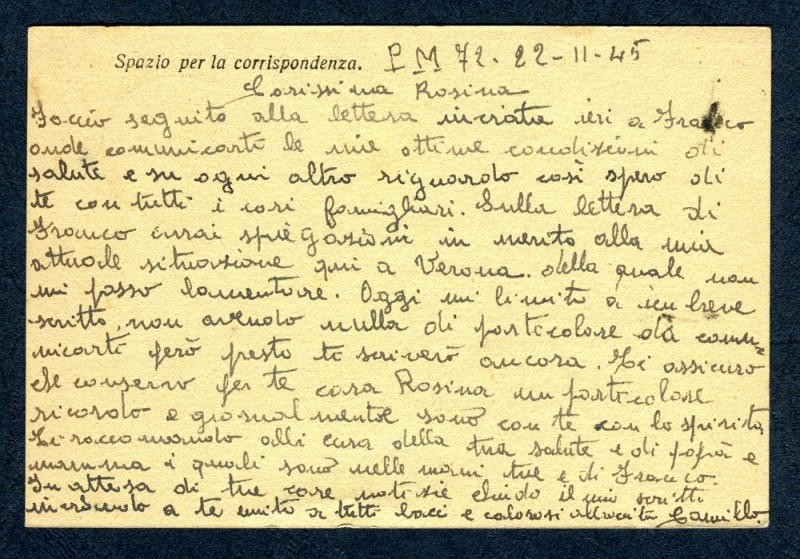 Spazio per la corrispondenza. P M 72. 22-11-45
Carissima Rosina
Faccio seguito alla lettera inviata ieri a Franco
onde comunicarti le mie ottime condizioni di
salute e su ogni altro riguardo così spero di
te con tutti i cari famigliari. Sulla lettera di
Franco avrai spiegazioni in merito alla mia
attuale situazione qui a Verona. della quale non
mi posso lamentare. Oggi mi limito a un breve
scritto, non avendo nulla di particolare da comu-
nicarti però presto ti scriverò ancora. Ti assicuro
che conservo per te cara Rosina un particolare
ricordo e giornalmente sono con te con lo spirito,
Ti raccomando alli cura della tua salute e di papà e
mamma i quali sono nelle mani tue e di Franco.
In attesa di tue care notizie chiudo il mio scritti
a te unito a tutti baci e calorosi Camillo.